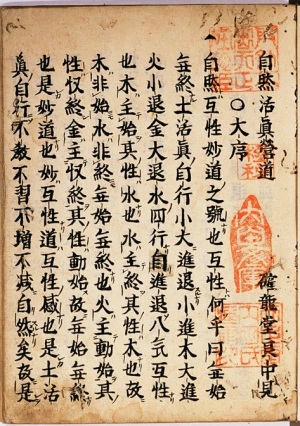 自然活真營道　確龍堂良中見
〇大序
一自然互性妙道之號也互性何乎曰無始
無終土活眞自行小大進退小進木大進
火小退金大退水四行自進退八氣互性
也木主始其性水也水主終其性木也故
木非始水非終無始無終也火主動始其
性収終金主収終其性動始故無始無終
也是妙道也妙互性道互性感也是土活
眞自行不教不習不增不減自然矣故是